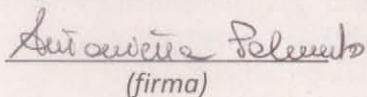 Antonietta Palumbo
(firma)